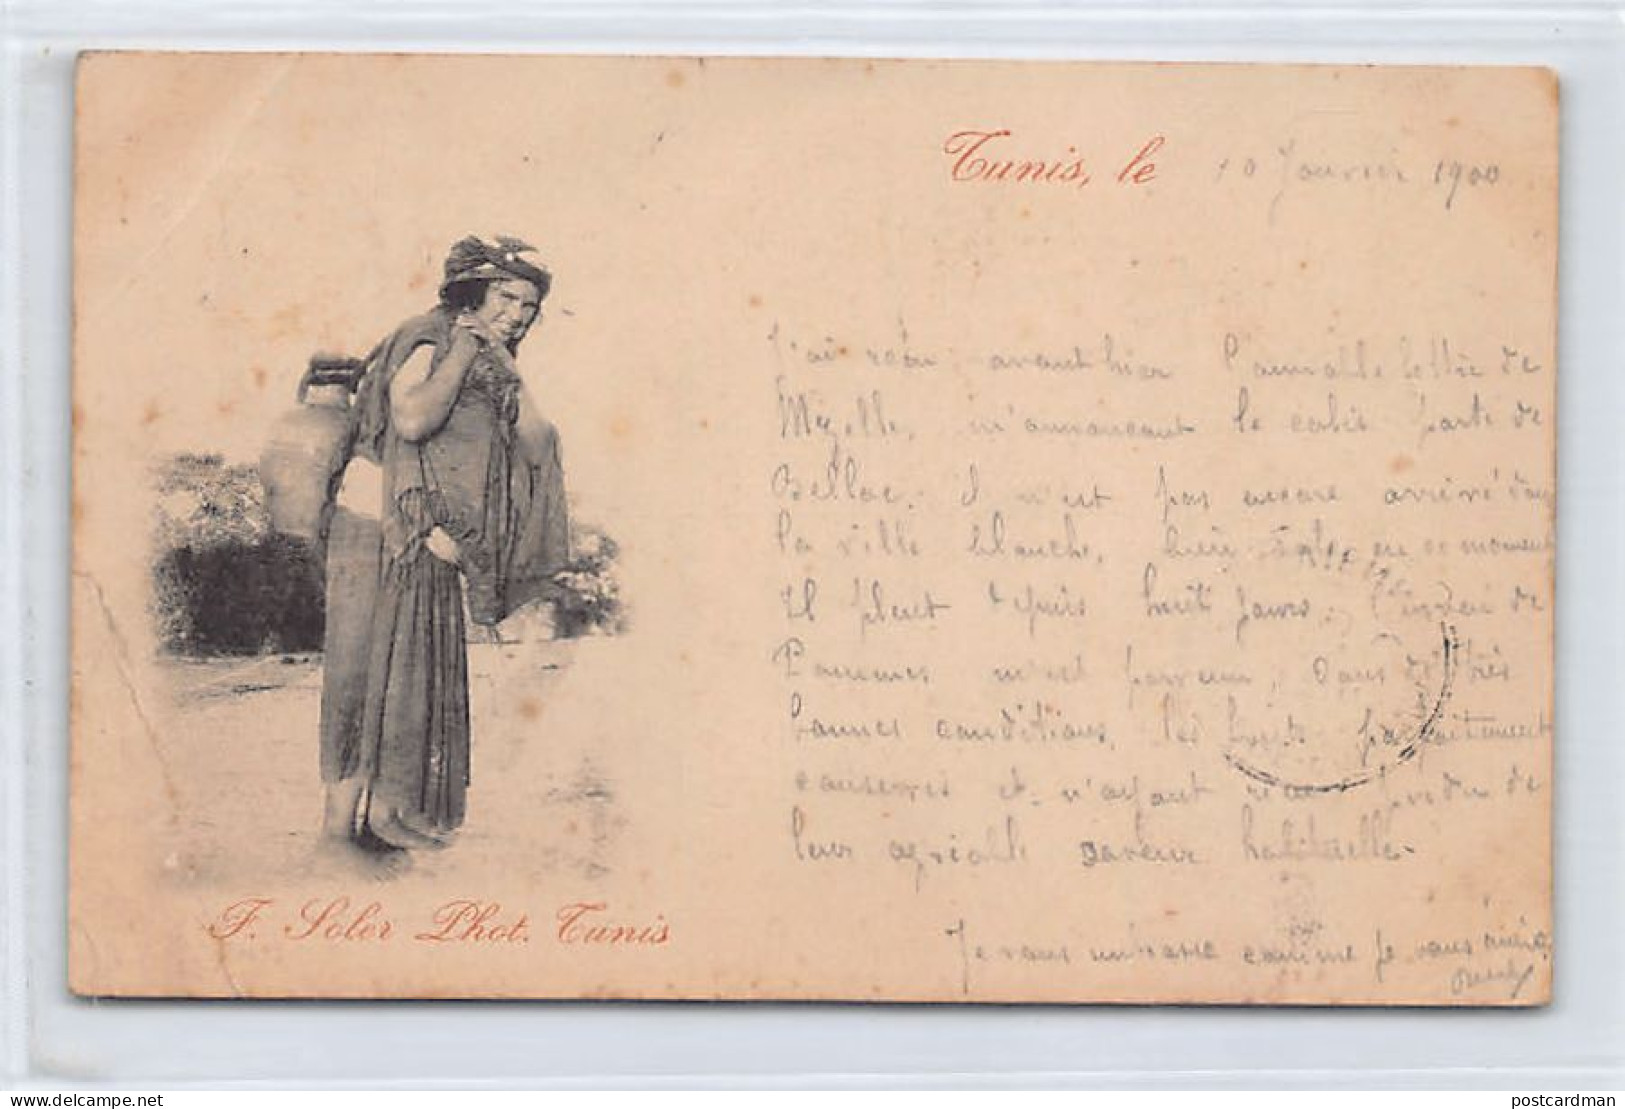 Tunis, le 10 Janvier 1900
J'ai reçu avant hier l'aimable lettre de
m'annonçant le colis parti de
Bellac. Il n'est pas encore arrivé dans
la ville blanche, bien sale en ce moment
Il pleut depuis huit jours. l'envoi de
Pommes m'est parvenu, dans de très
bonnes conditions, les fruits parfaitement
conservés et n'ayant rien perdu de
leur agréable saveur habituelle.
Je vous embrasse comme je vous aime
F. Soler Phot. Tunis
postcardman.net
postcardman